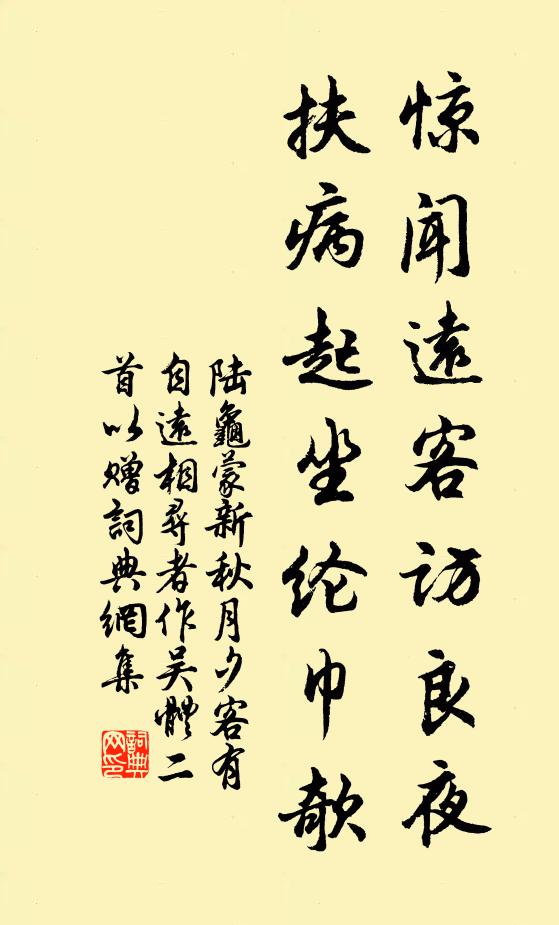 惊闻遠客访良夜
扶病起坐纶巾欹
陆龜蒙新秋月夕客有
自遠相尋者作吴體二
首以赠詞典網集
詞典
网印